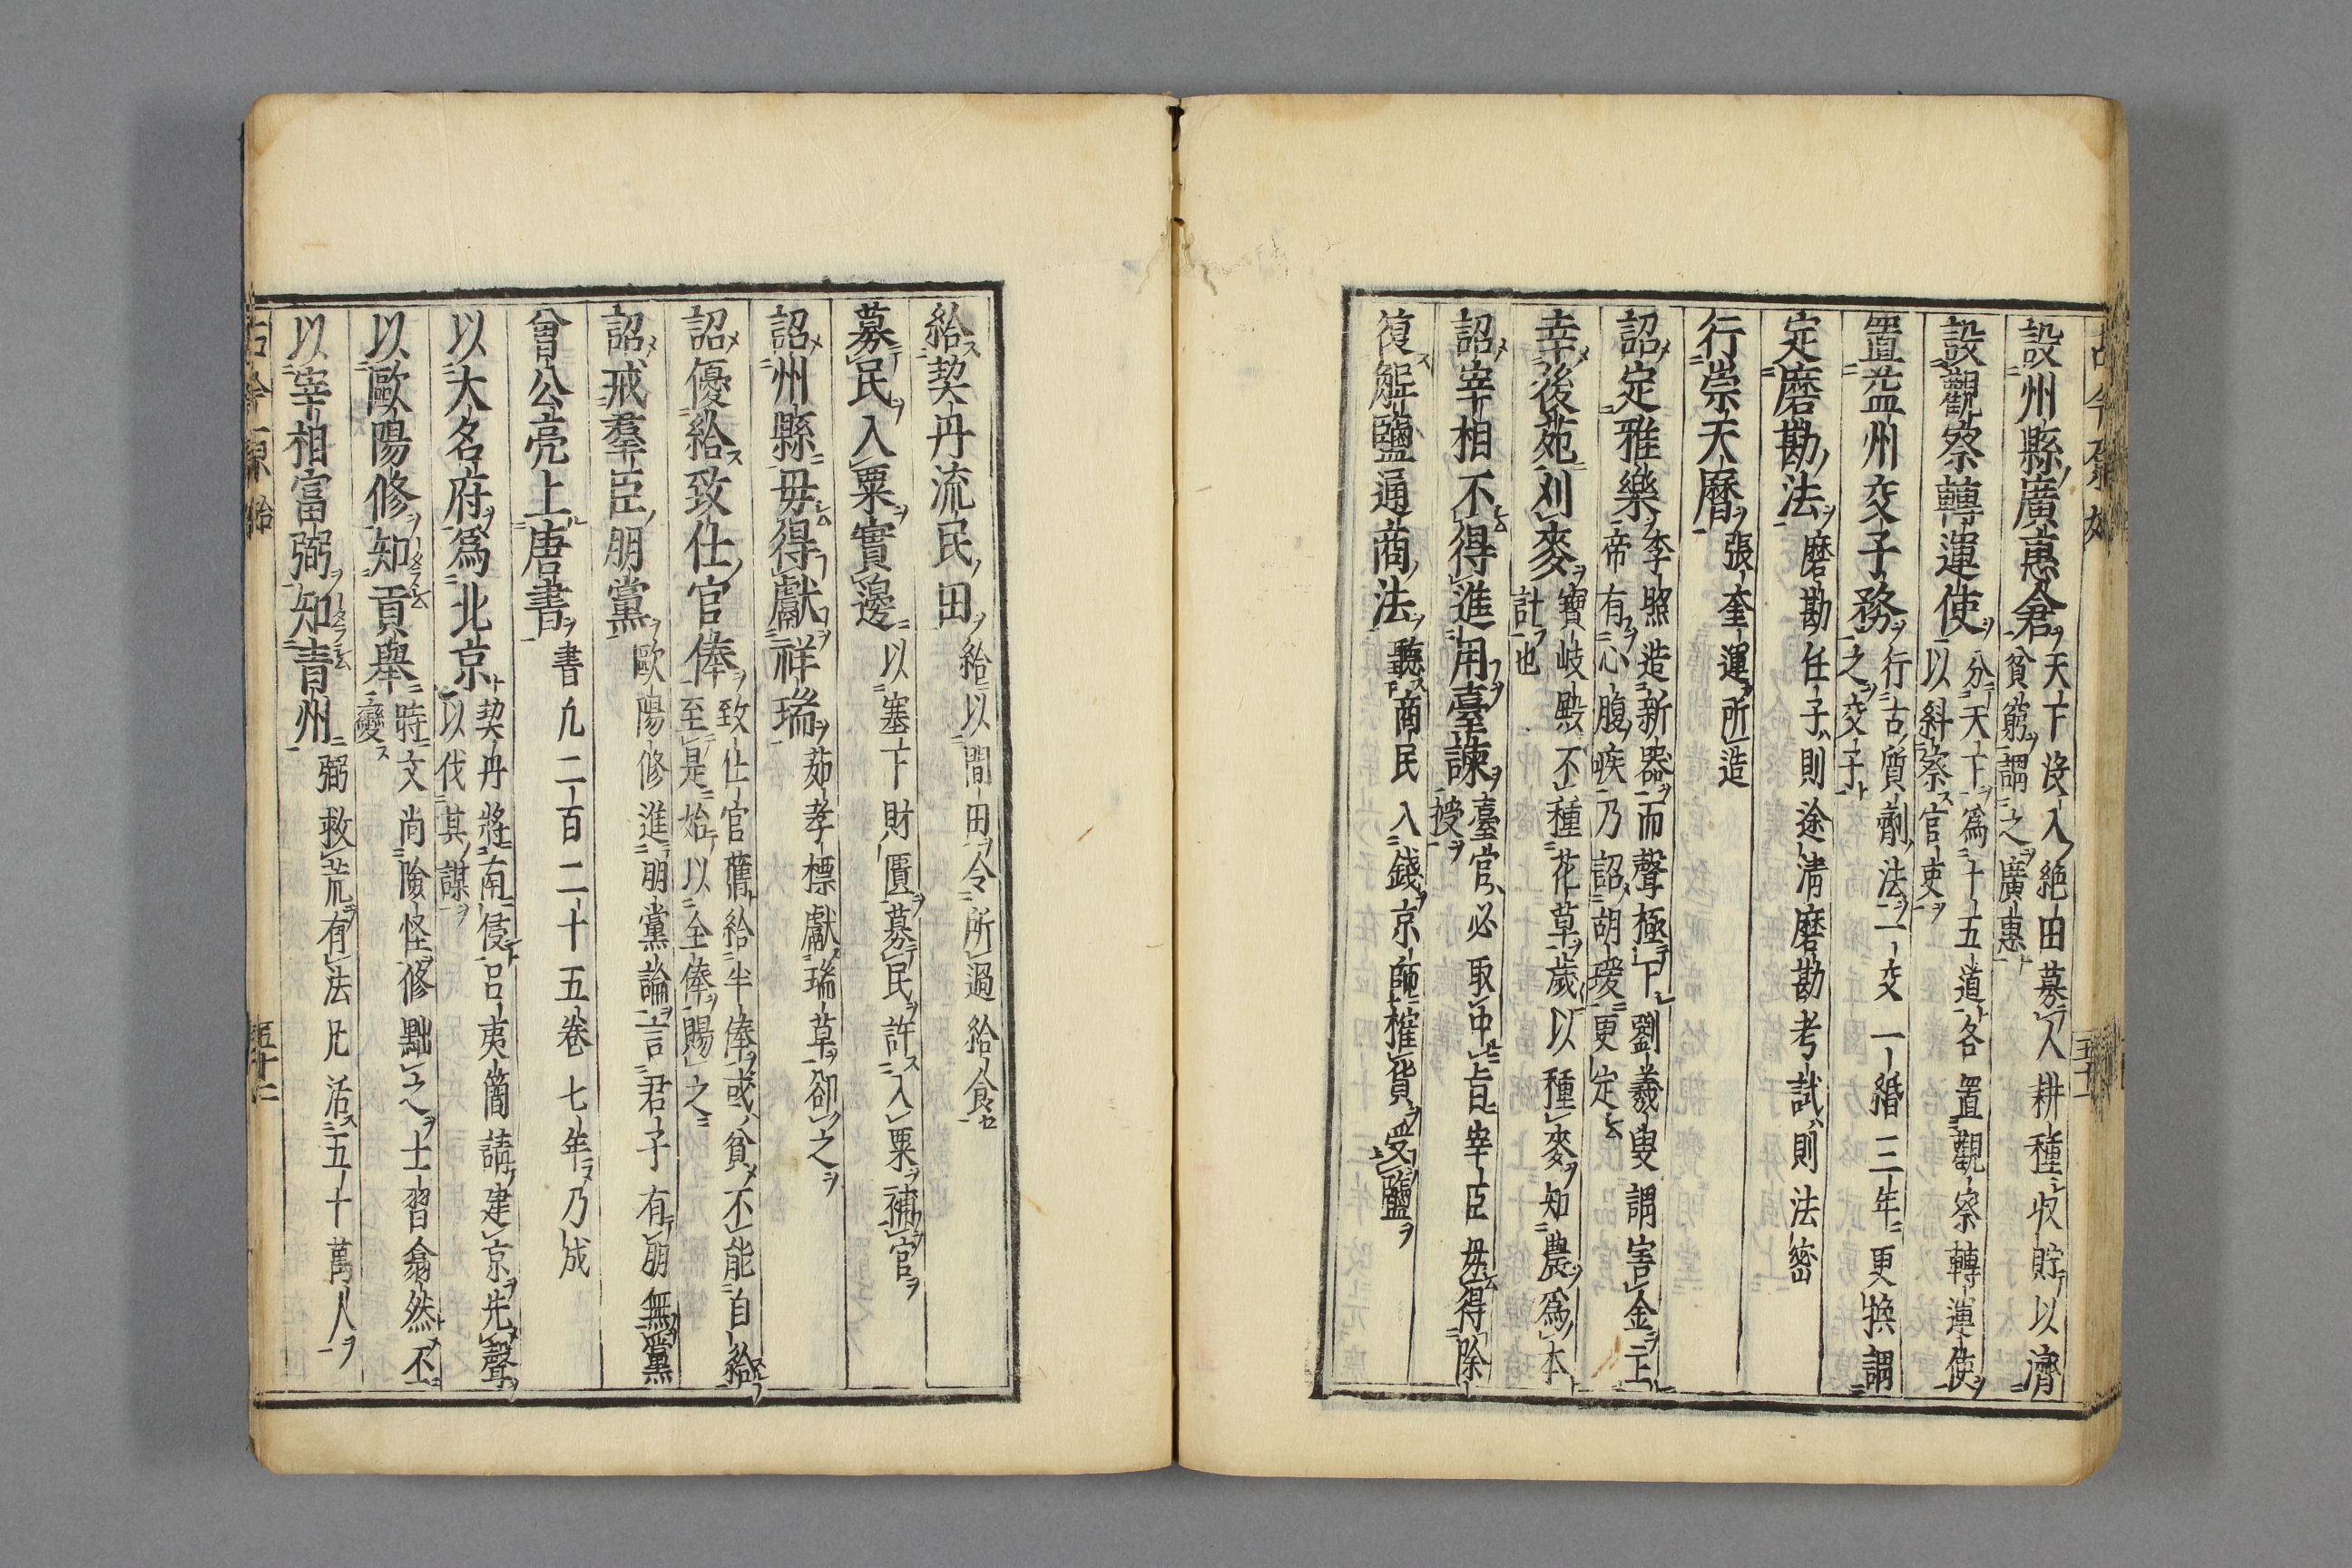 設州縣廣惠倉 天下沒入絶田募人耕種收貯以濟
貧窮謂之廣惠
設觀察轉運使 分天下爲十五道各置觀察轉運使
以糾察官吏
置益州交子務 行古質劑法一交一緡三年更換謂
之交子
定磨勘法 磨勘任子則途清磨勘考試則法密
行崇天曆 張奎運所造
詔定雅樂 李照造新器而聲極下劉羲叟謂害金
帝有心腹疾乃詔胡瑗更定
幸後苑刈麥 寶岐殿不種花草歲以種麥知農爲本
計也
詔宰相不得進用臺諫 臺官必取中旨宰臣毋得除
授
復解鹽通商法 聽商民入錢京師榷貨受鹽
給契丹流民田 給以間田令所過給食
募民入粟實邊 以塞下財匱募民許入粟補官
詔州縣毋得獻祥瑞 茹孝標獻瑞草卻之
詔優給致仕官俸 致仕官舊給半俸或貧不能自給
至是始以全俸賜之
詔戒羣臣朋黨 歐陽修進朋黨論言君子有朋無黨
曾公亮上唐書 書凢二百二十五卷七年乃成
以大名府爲北京 契丹將南侵呂夷簡請建京先聲
以伐其謀
以歐陽修知貢舉 時文尚險怪修黜之士習翕然丕
變
以宰相富弼知青州 弼救荒有法凡活五十萬人
古今原始
五十二